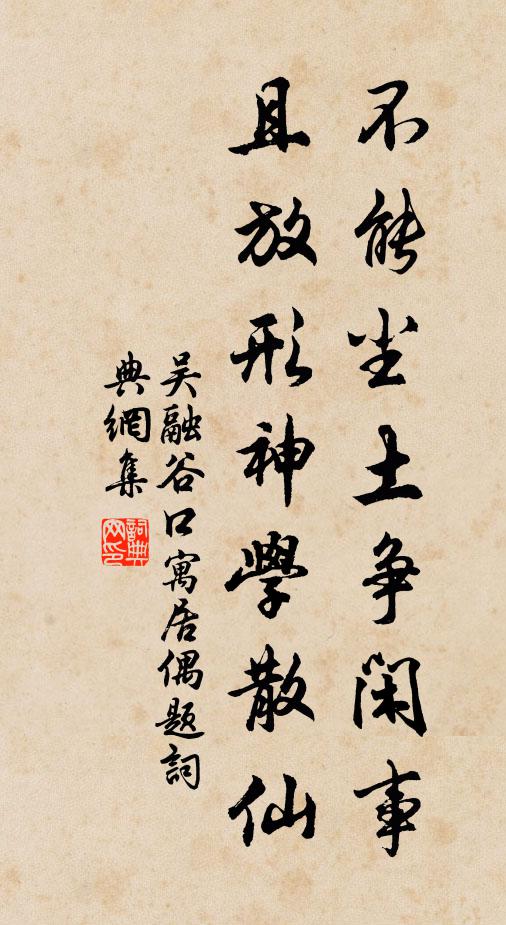 不能尘土争闲事
且放形神學散仙
吴融谷口寓居偶题詞
典網集
詞典網印